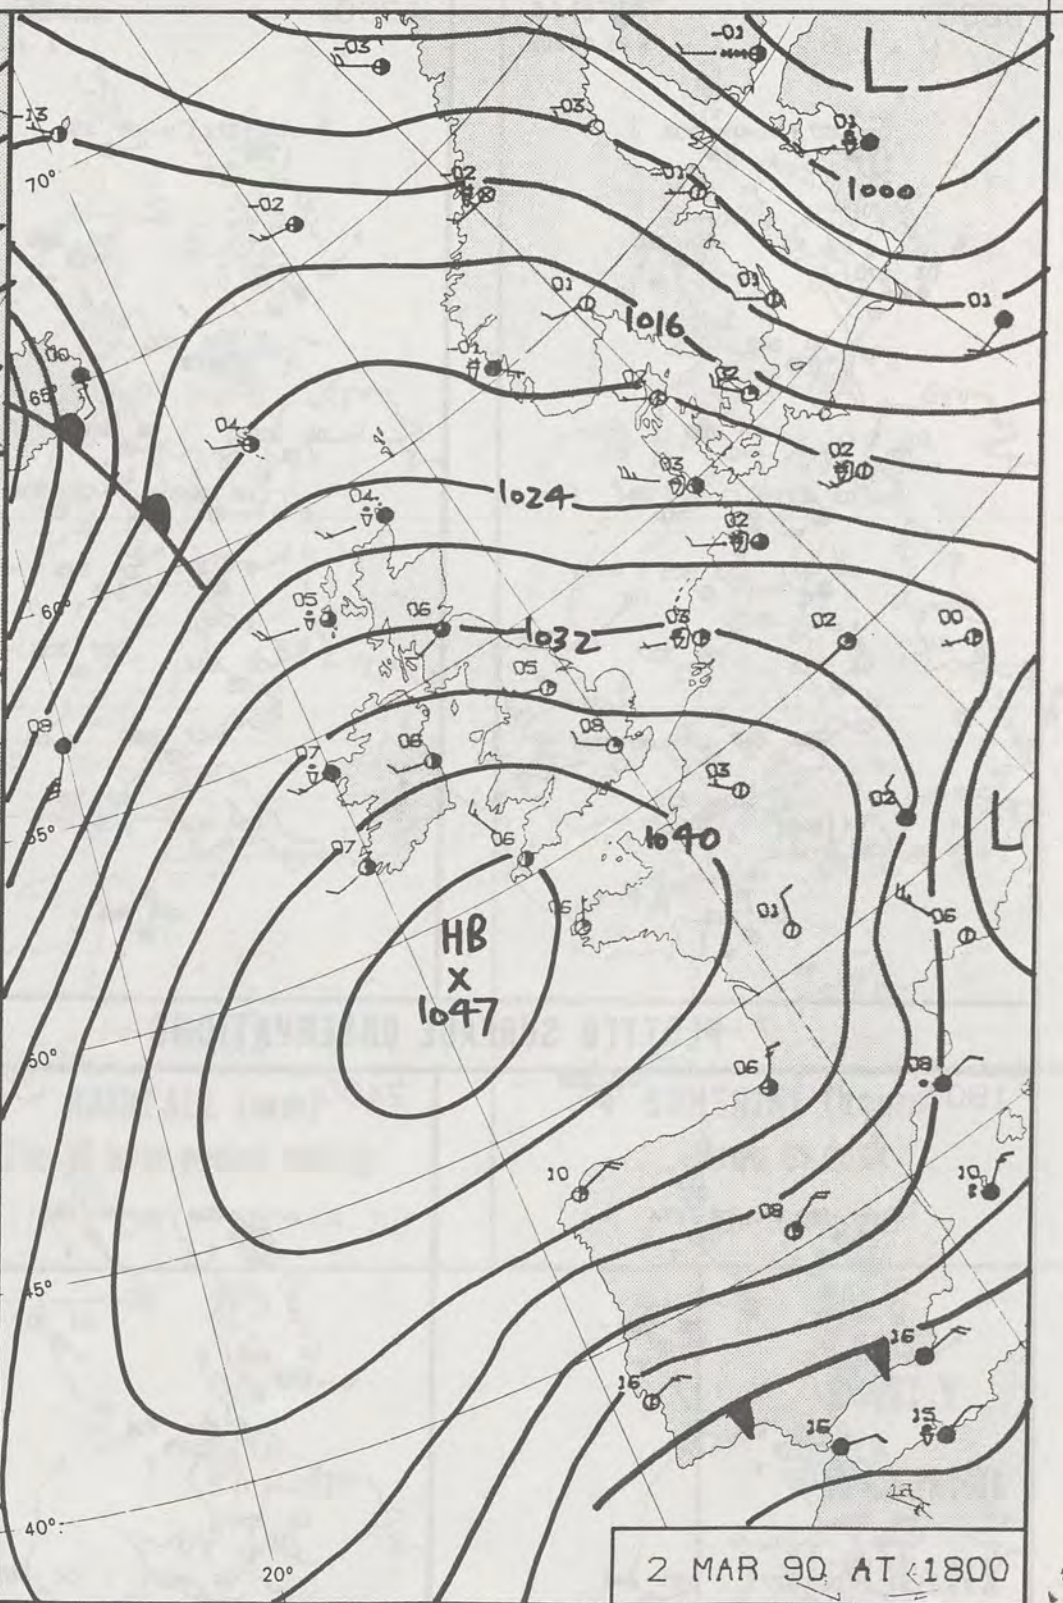 -03
-01
L
-13
-03
01
70°
-02
-01
1000
-02
01
01
01
1016
00
-01
02
65°
04
03
02
04
1024
02
60°
05
06
1032
03
02
00
05
08
08
07
08
03
02
55°
1040
L
07
06
06
01
06
HB
X
1047
50°
06
08
10
10
08
45°
16
16
16
15
40°
20°
2 MAR 90 AT 1800